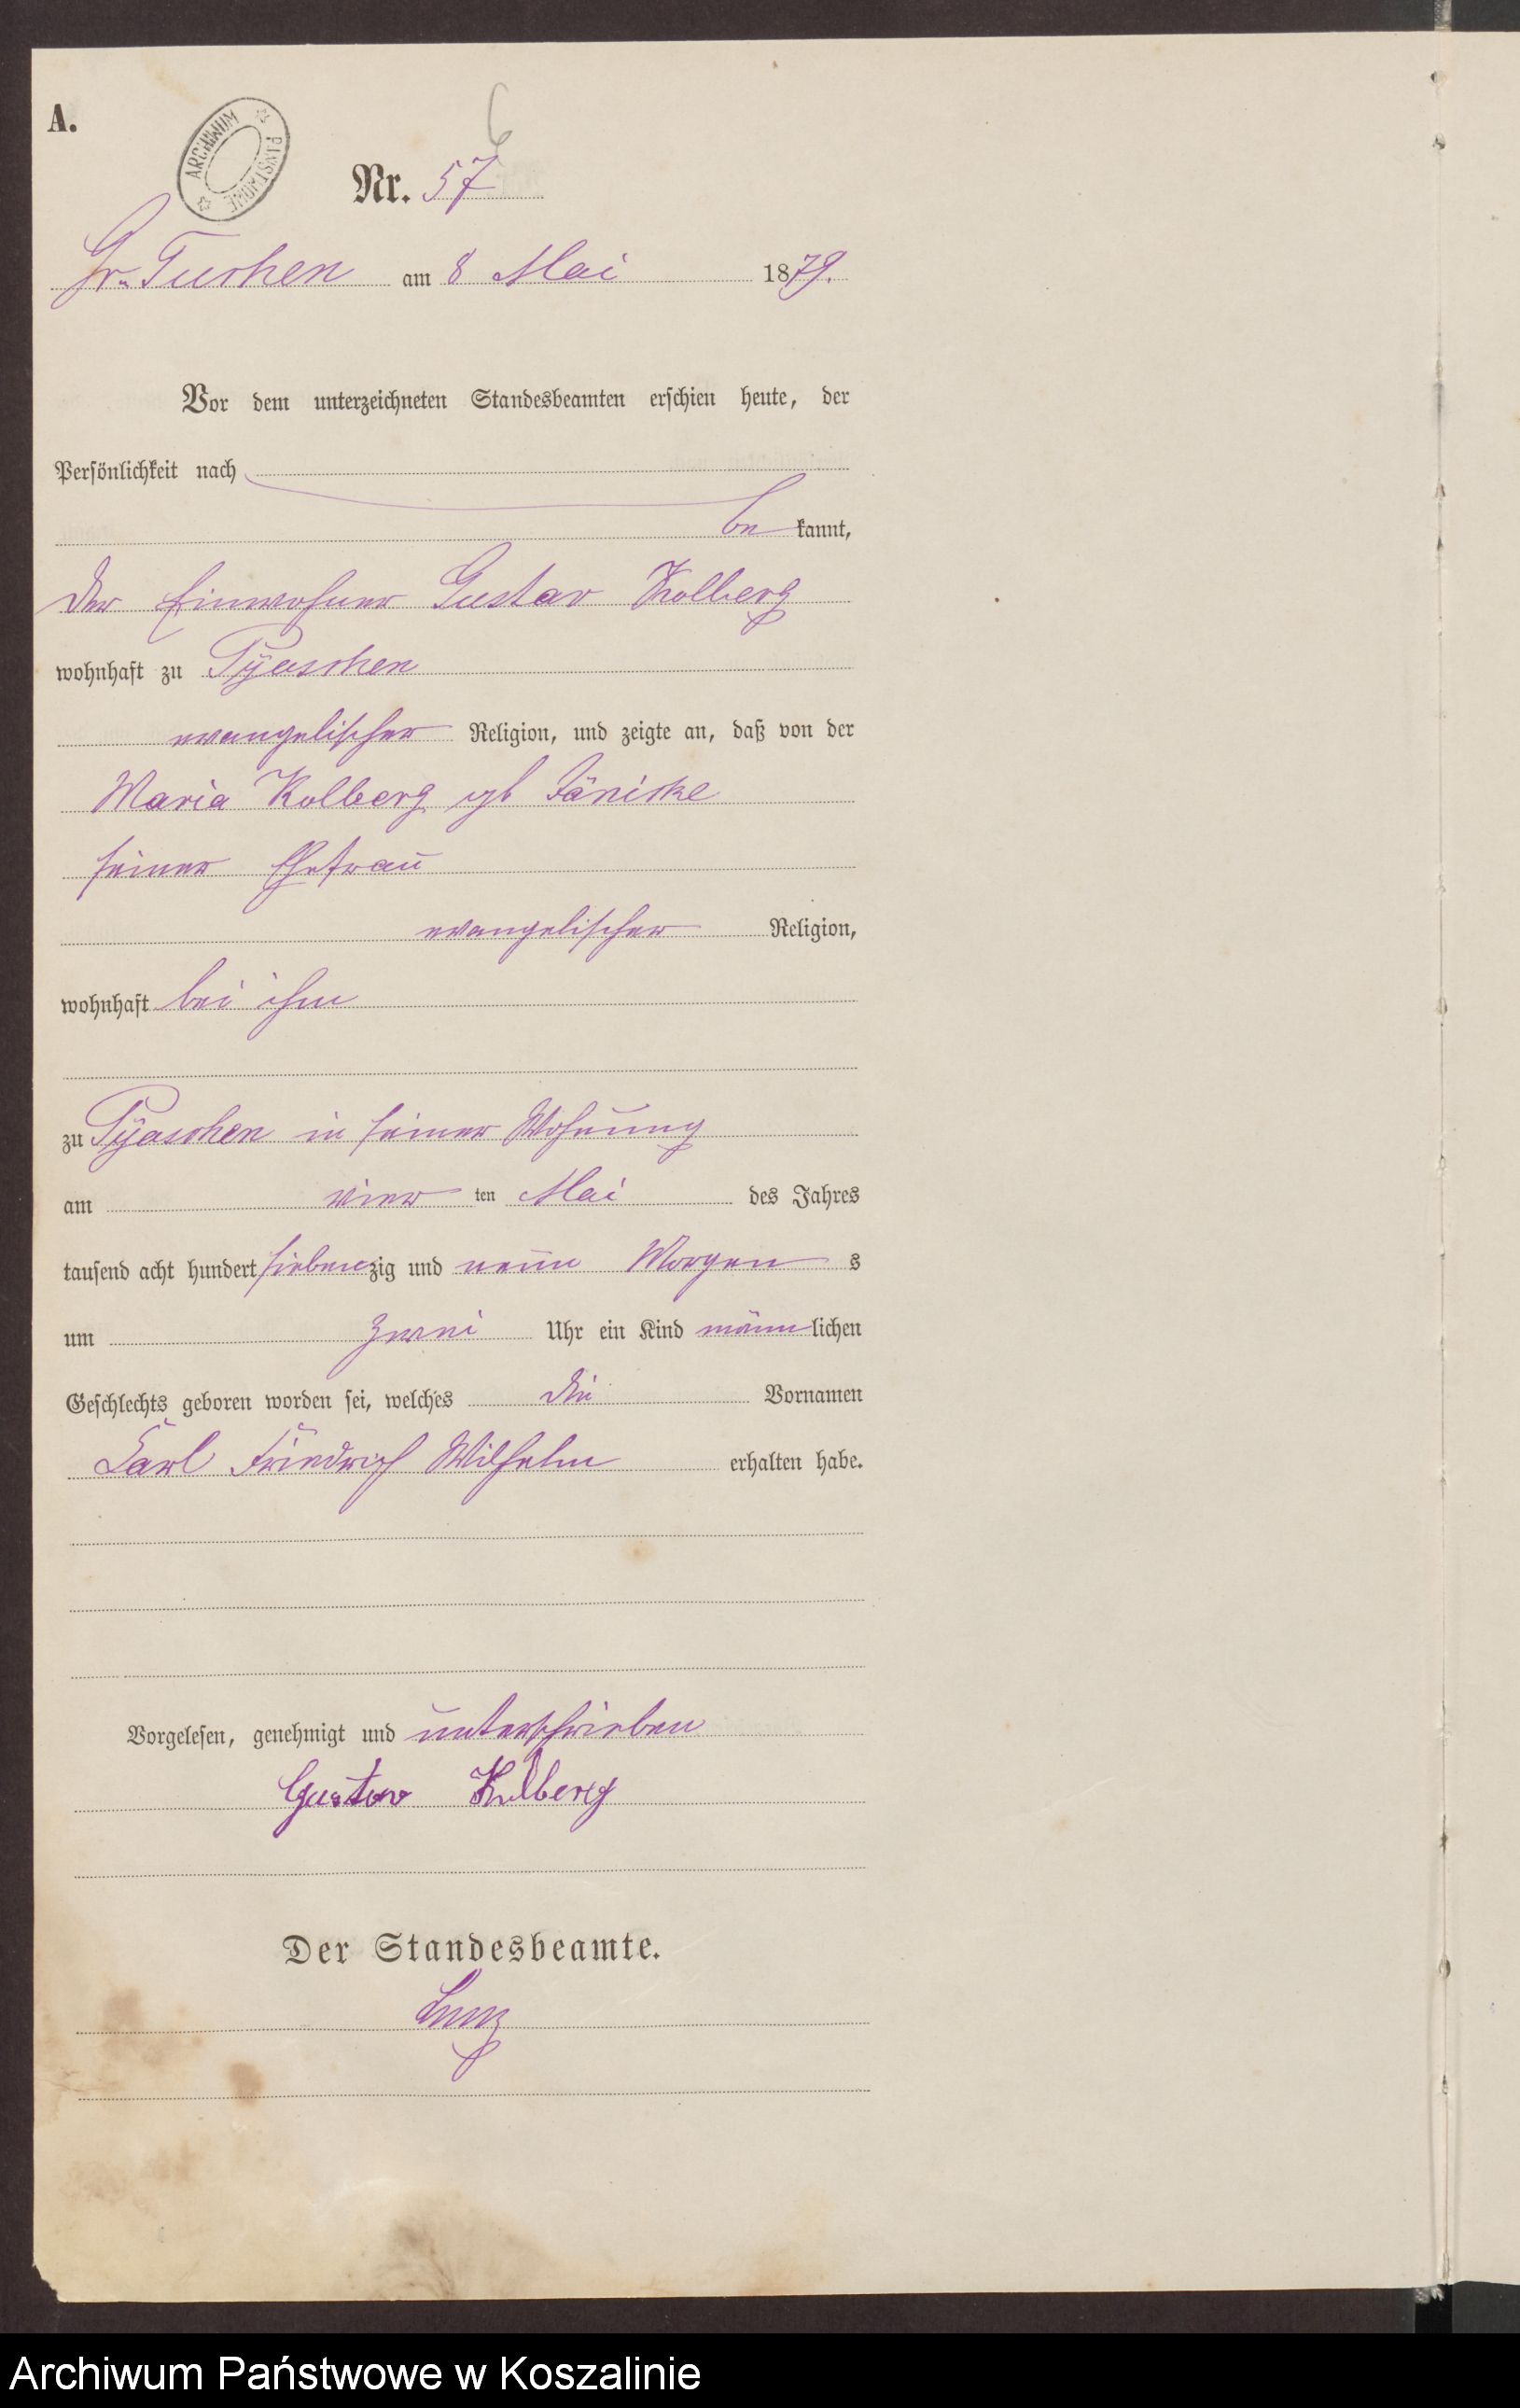 A.
ARCHIWUM PAŃSTWOWE
6
Nr. 57
Gr. Tuchen am 8 Mai 1879.
Vor dem unterzeichneten Standesbeamten erschien heute, der
Persönlichkeit nach
be kannt,
der Einwohner Gustav Kolberg
wohnhaft zu Pyaschen
evangelischer Religion, und zeigte an, daß von der
Maria Kolberg geb Jänicke
seiner Ehefrau
evangelischer Religion,
wohnhaft bei ihm
zu Pyaschen in seiner Wohnung
am vier ten Mai des Jahres
tausend acht hundert siebenzig und neun Morgen s
um zwei Uhr ein Kind männlichen
Geschlechts geboren worden sei, welches die Vornamen
Carl Friedrich Wilhelm erhalten habe.
Vorgelesen, genehmigt und unterschrieben
Gustav Kolberg
Der Standesbeamte.
Archiwum Państwowe w Koszalinie